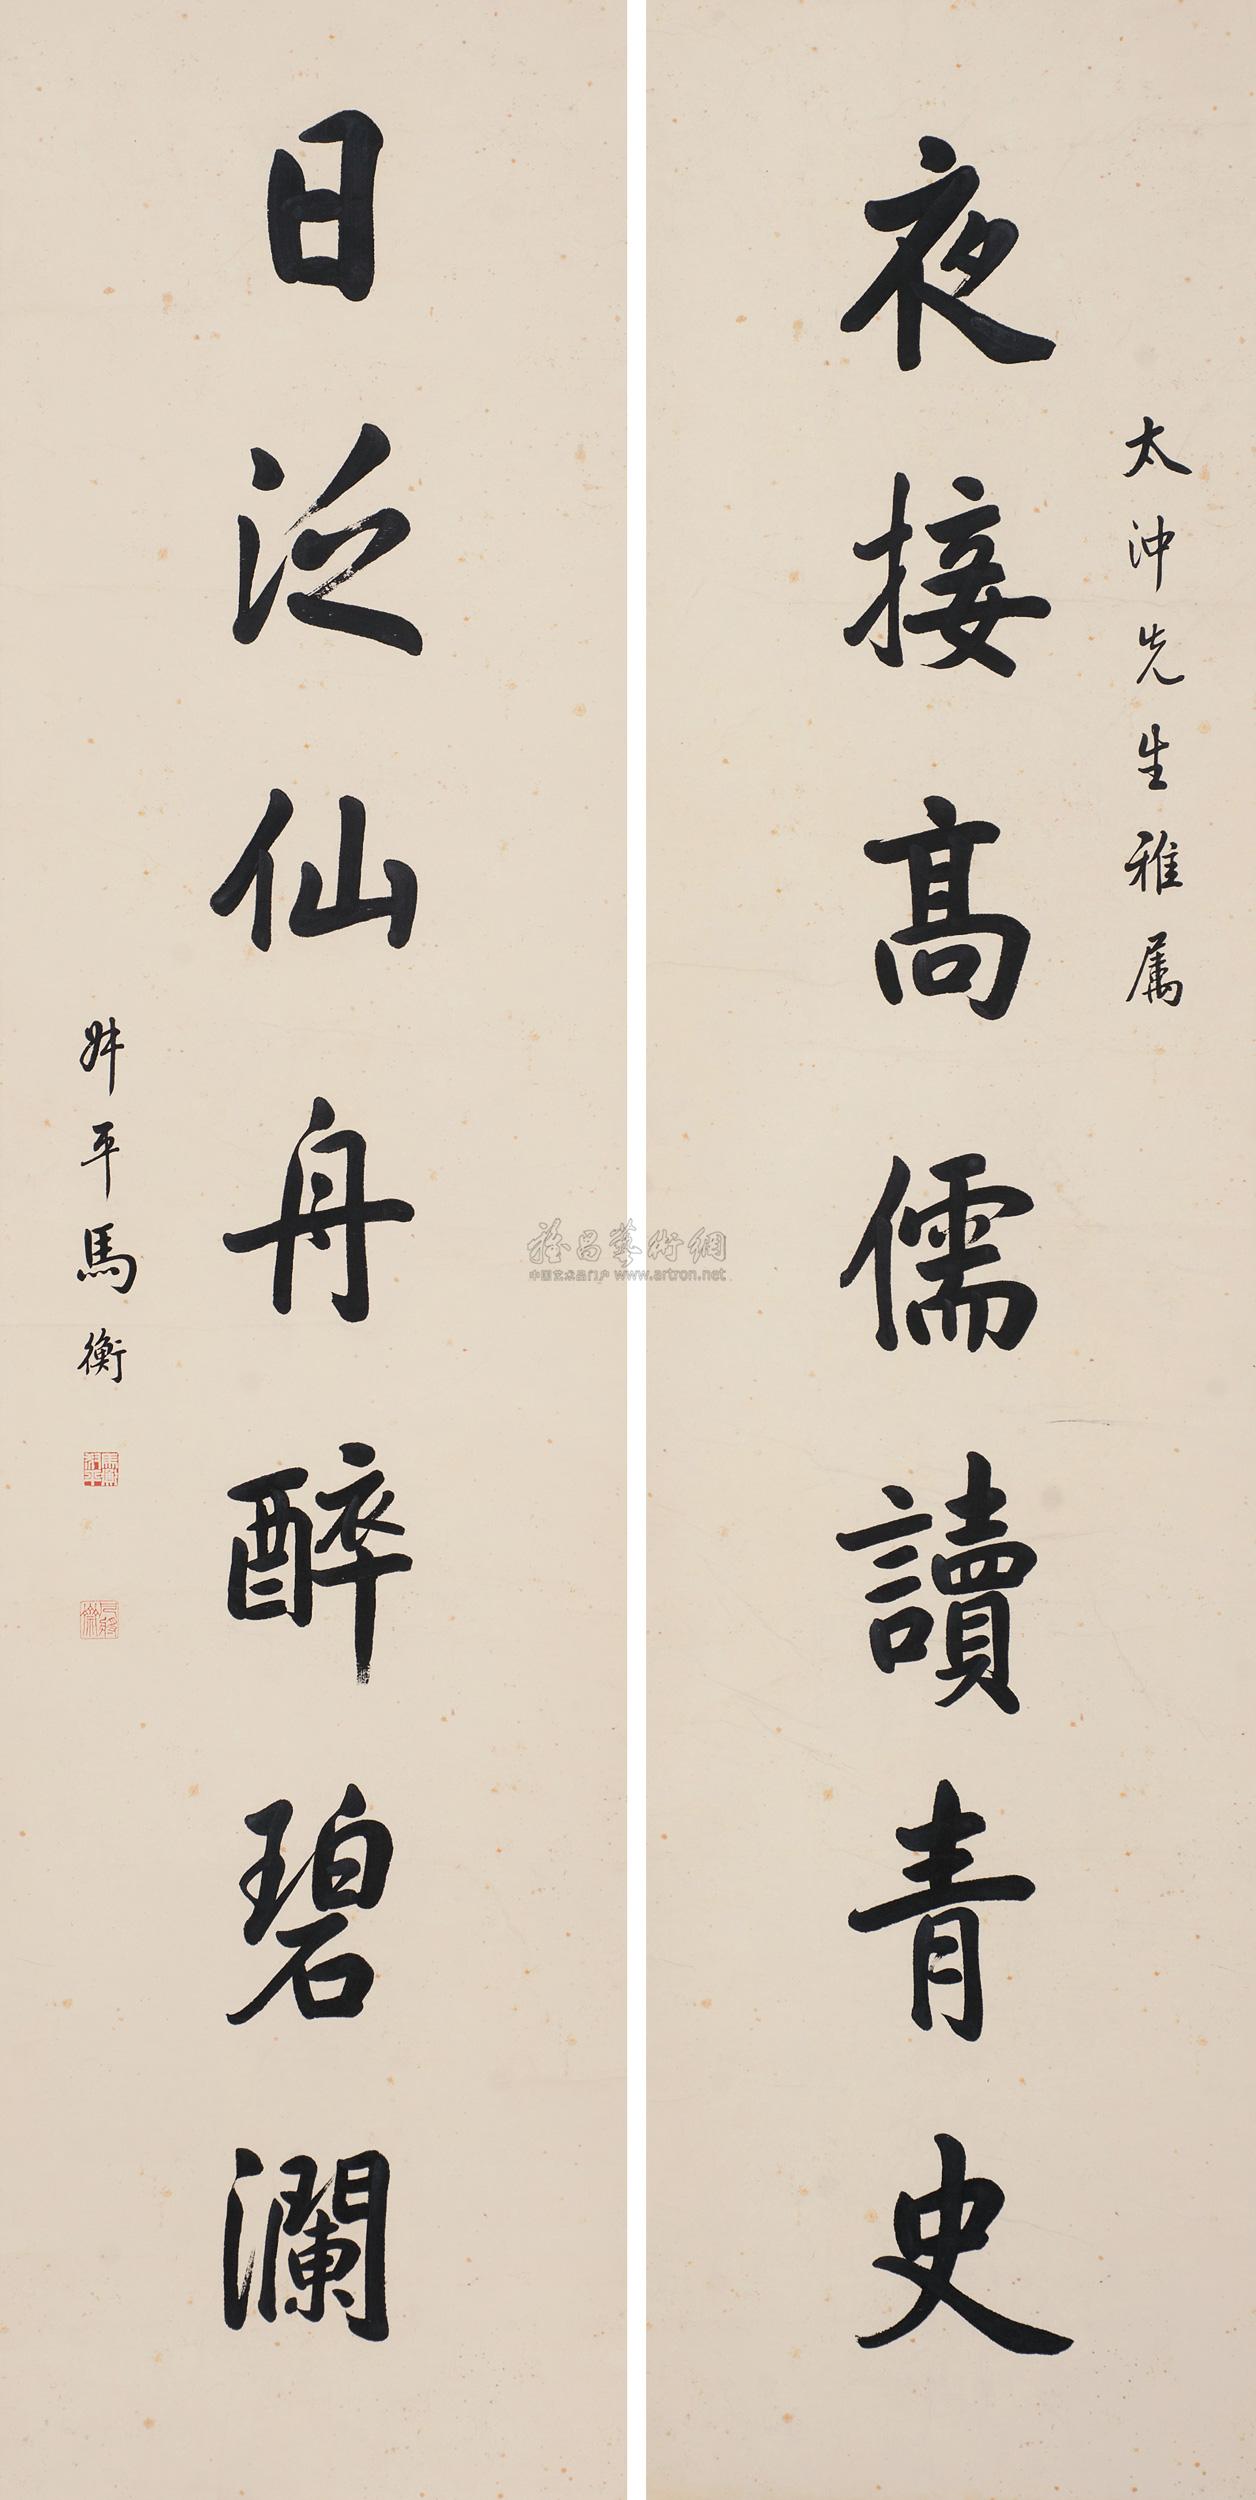 太沖先生雅属
夜接高儒讀青史
日泛仙舟醉碧瀾
叔平馬衡
雅昌藝術網
中国艺术品门户 www.artron.net